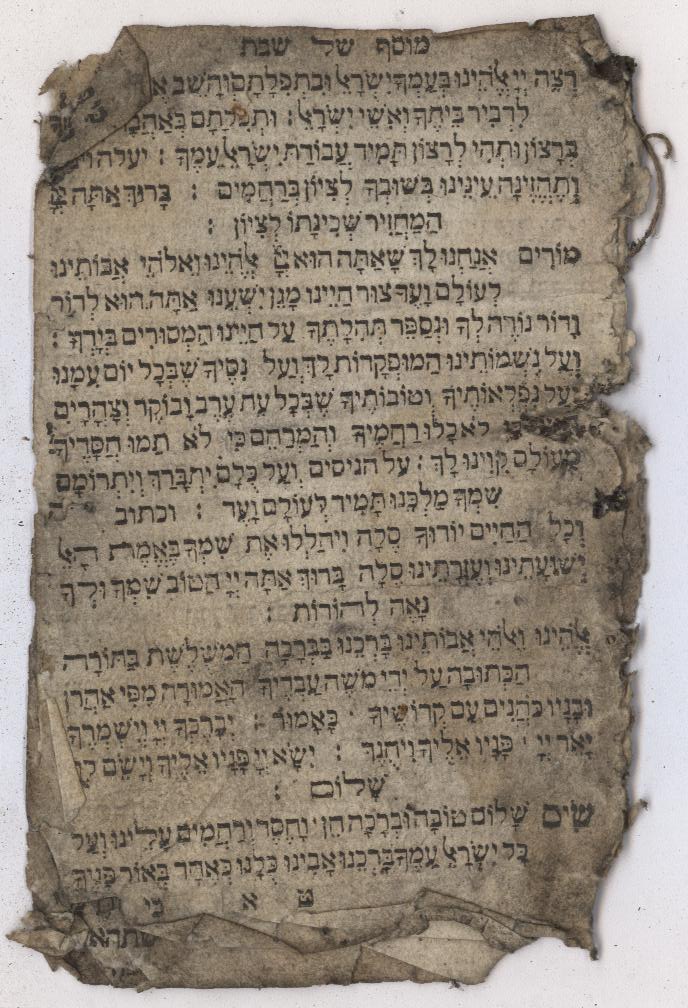 מוסף של שבת
רְצֵה יְיָ אֱלֹהֵינוּ בְּעַמְּךָ יִשְׂרָאֵל וּבִתְפִלָּתָם וְהָשֵׁב
לִדְבִיר בֵּיתֶךָ וְאִשֵּׁי יִשְׂרָאֵל : וּתְפִלָּתָם בְּאַהֲבָה
בְּרָצוֹן וּתְהִי לְרָצוֹן תָּמִיד עֲבוֹדַת יִשְׂרָאֵל עַמֶּךָ : יעלה
וְתֶחֱזֶינָה עֵינֵינוּ בְּשׁוּבְךָ לְצִיּוֹן בְּרַחֲמִים : בָּרוּךְ אַתָּה יְיָ
הַמַּחֲזִיר שְׁכִינָתוֹ לְצִיּוֹן :
מוֹדִים אֲנַחְנוּ לָךְ שָׁאַתָּה הוּא יְיָ אֱלֹהֵינוּ וֵאלֹהֵי אֲבוֹתֵינוּ
לְעוֹלָם וָעֶד צוּר חַיֵּינוּ מָגֵן יִשְׁעֵנוּ אַתָּה הוּא לְדוֹר
וָדוֹר נוֹדֶה לְךָ וּנְסַפֵּר תְּהִלָּתֶךָ עַל חַיֵּינוּ הַמְּסוּרִים בְּיָדֶךָ :
וְעַל נִשְׁמוֹתֵינוּ הַפְּקוּדוֹת לָךְ וְעַל נִסֶּיךָ שֶׁבְּכָל יוֹם עִמָּנוּ
וְעַל נִפְלְאוֹתֶיךָ וְטוֹבוֹתֶיךָ שֶׁבְּכָל עֵת עֶרֶב וָבוֹקֶר וְצָהֳרָיִם
לֹא כָלוּ רַחֲמֶיךָ וְהַמְרַחֵם כִּי לֹא תַמּוּ חֲסָדֶיךָ
מֵעוֹלָם קִוִּינוּ לָךְ : על הניסים וְעַל כֻּלָּם יִתְבָּרַךְ וְיִתְרוֹמָם
שִׁמְךָ מַלְכֵּנוּ תָּמִיד לְעוֹלָם וָעֶד : וכתוב
וְכָל הַחַיִּים יוֹדוּךָ סֶּלָה וִיהַלְלוּ אֶת שִׁמְךָ בֶּאֱמֶת הָאֵל
יְשׁוּעָתֵינוּ וְעֶזְרָתֵינוּ סֶלָה בָּרוּךְ אַתָּה יְיָ הַטּוֹב שִׁמְךָ וּלְךָ
נָאֶה לְהוֹדוֹת :
אֱלֹהֵינוּ וֵאלֹהֵי אֲבוֹתֵינוּ בָּרְכֵנוּ בַּבְּרָכָה הַמְשֻׁלֶּשֶׁת בַּתּוֹרָה
הַכְּתוּבָה עַל יְדֵי מֹשֶׁה עַבְדֶּיךָ הָאֲמוּרָה מִפִּי אַהֲרֹן
וּבָנָיו כֹּהֲנִים עַם קְדוֹשֶׁיךָ כָּאָמוּר : יְבָרֶכְךָ יְיָ וְיִשְׁמְרֶךָ
יָאֵר יְיָ פָּנָיו אֵלֶיךָ וִיחֻנֶּךָּ : יִשָּׂא יְיָ פָּנָיו אֵלֶיךָ וְיָשֵׂם לְךָ
שָׁלוֹם :
שִׂים שָׁלוֹם טוֹבָה וּבְרָכָה חֵן וָחֶסֶד וְרַחֲמִים עָלֵינוּ וְעַל
כָּל יִשְׂרָאֵל עַמֶּךָ בָּרְכֵנוּ אָבִינוּ כֻּלָּנוּ כְּאֶחָד בְּאוֹר פָּנֶיךָ